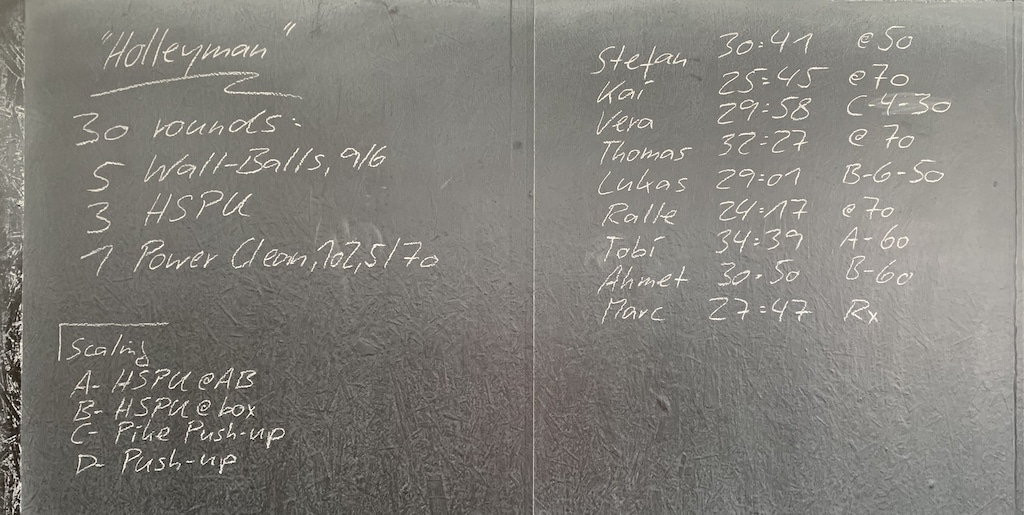 "Holleyman"
30 rounds:
5 Wall-Balls, 9/6
3 HSPU
1 Power Clean, 102,5/70
Scaling
A- HSPU @AB
B- HSPU @ box
C- Pike Push-up
D- Push-up
Stefan 30:41 @50
Kai 25:45 @70
Vera 29:58 C-4-30
Thomas 32:27 @ 70
Lukas 29:01 B-6-50
Ralle 24:17 @70
Tobi 34:39 A-60
Ahmet 30:50 B-60
Marc 27:47 Rx